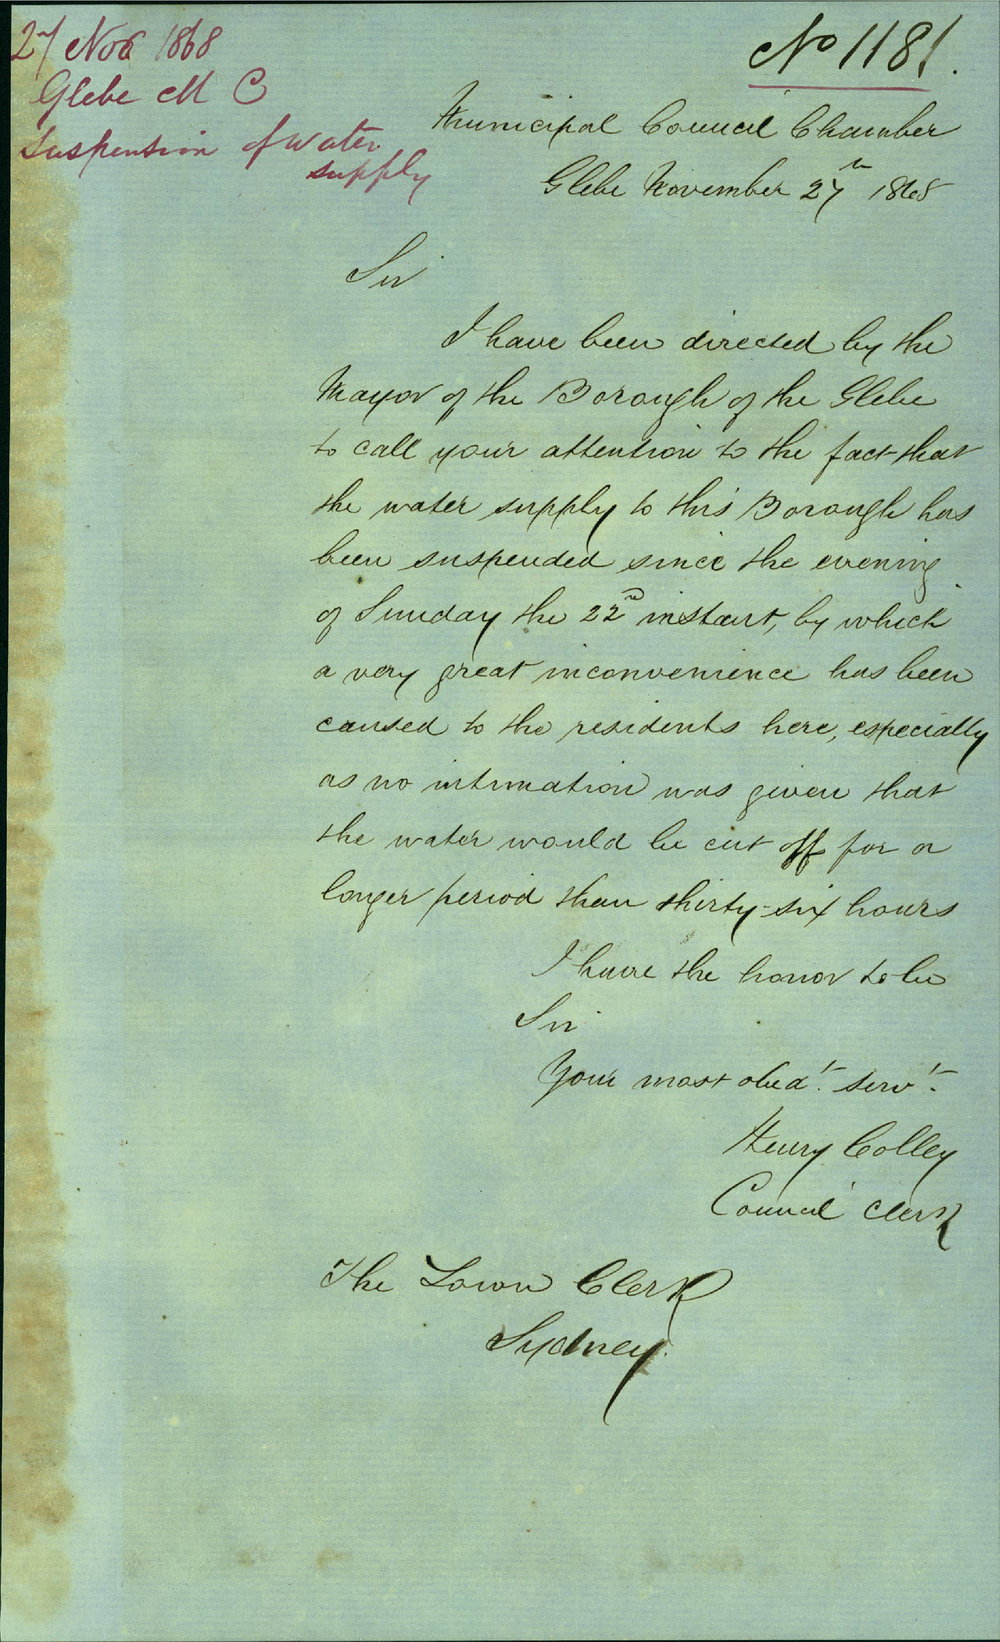 27 Nov 1868
Glebe M C
Suspension of water
supply
No 1181.
Municipal Council Chamber
Glebe November 27th 1868
Sir
I have been directed by the
Mayor of the Borough of the Glebe
to call your attention to the fact that
the water supply to this Borough has
been suspended since the evening
of Sunday the 22nd instant, by which
a very great inconvenience has been
caused to the residents here, especially
as no intimation was given that
the water would be cut off for a
longer period than thirty-six hours
I have the honor to be
Sir
Your most obedt. servt.
Henry Colley
Council Clerk
The Town Clerk
Sydney.